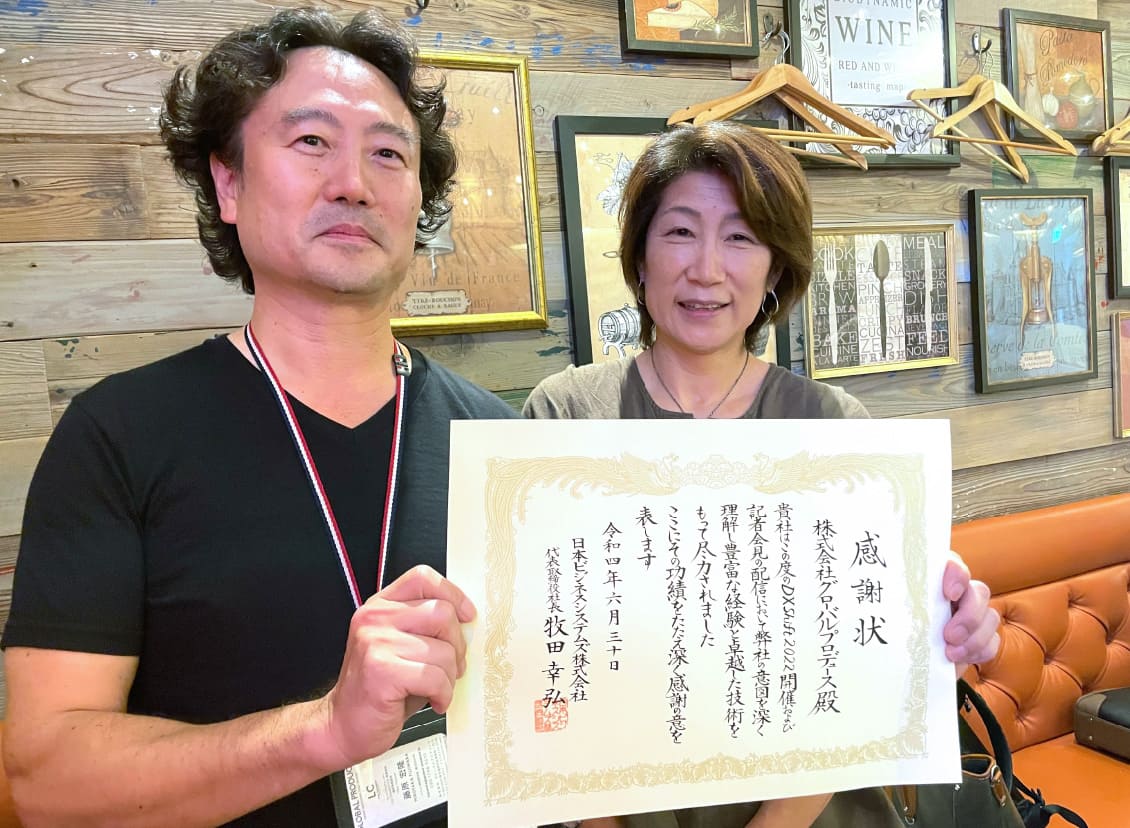 感謝状
株式会社グローバルプロデュース 殿
貴社はこの度のDX Shift 2022開催および
記者会見の配信において弊社の意図を深く
理解し豊富な経験と卓越した技術を
もって尽力されました
ここにその功績をたたえ深く感謝の意を
表します
令和四年六月三十日
日本ビジネスシステムズ株式会社
代表取締役社長 牧田幸弘
GLOBAL PRODUCE
LC
藤原 宏隆
BIODYNAMIC
WINE
RED AND
tasting map
Pasta
Vin de France
TIRE-BOUCHON
CLOCHE A RAGUE
COOK
MEAL
KITCHEN
PINCH
SNACK
GROCERY
DISH
BREW
AROMA
BRUNCH
BAKE
ZEST
FEED
CUISINE
FRESH
NOURISH